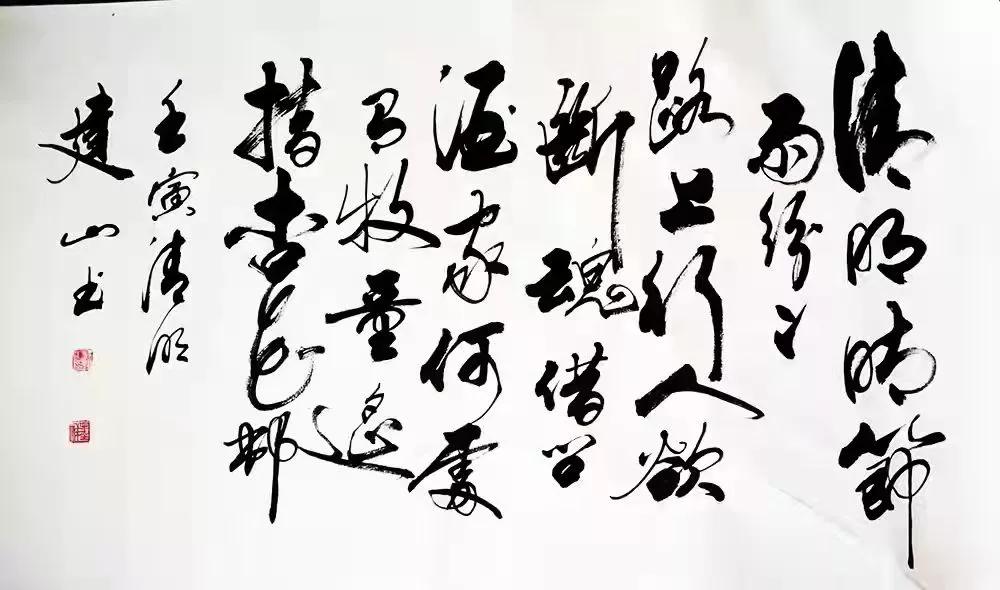 清明時節
雨紛々
路上行人欲
斷魂借問
酒家何處
有牧童遙
指杏花邨
壬寅清明
建山书